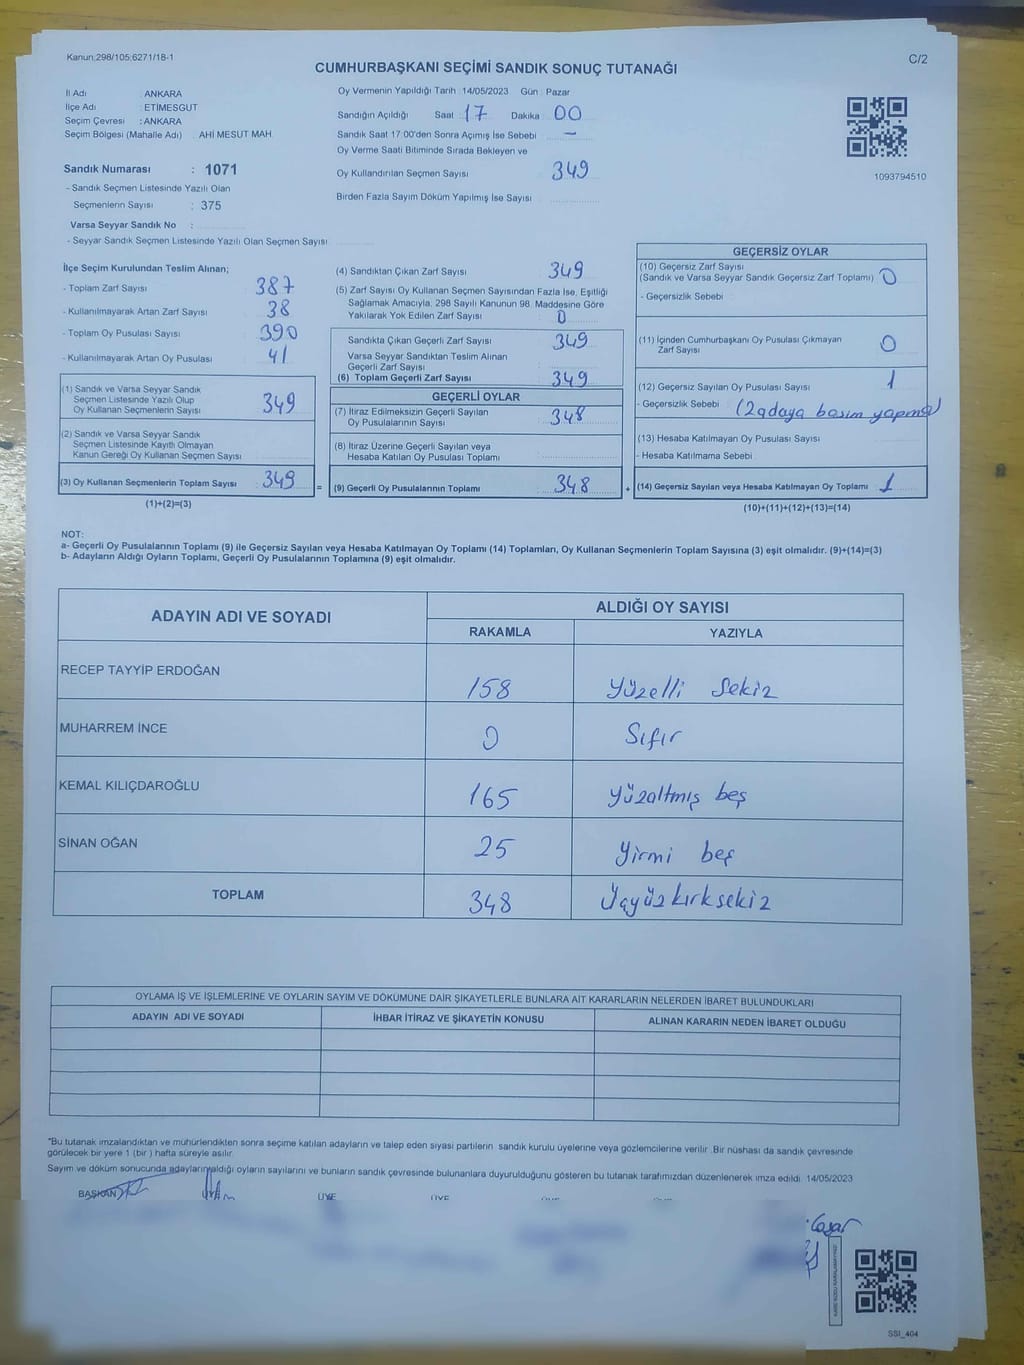 Kanun:298/105;6271/18-1
C/2
CUMHURBAŞKANI SEÇİMİ SANDIK SONUÇ TUTANAĞI
İl Adı : ANKARA
İlçe Adı : ETİMESGUT
Seçim Çevresi : ANKARA
Seçim Bölgesi (Mahalle Adı) : AHİ MESUT MAH.
Sandık Numarası : 1071
- Sandık Seçmen Listesinde Yazılı Olan
Seçmenlerin Sayısı : 375
Varsa Seyyar Sandık No :
- Seyyar Sandık Seçmen Listesinde Yazılı Olan Seçmen Sayısı
Oy Vermenin Yapıldığı Tarih : 14/05/2023 Gün : Pazar
Sandığın Açıldığı Saat : 17 Dakika 00
Sandık Saat 17:00'den Sonra Açımış İse Sebebi —
Oy Verme Saati Bitiminde Sırada Bekleyen ve
Oy Kullandırılan Seçmen Sayısı 349
Birden Fazla Sayım Döküm Yapılmış İse Sayısı
1093794510
İlçe Seçim Kurulundan Teslim Alınan;
- Toplam Zarf Sayısı : 387
- Kullanılmayarak Artan Zarf Sayısı : 38
- Toplam Oy Pusulası Sayısı : 390
- Kullanılmayarak Artan Oy Pusulası : 41
(1) Sandık ve Varsa Seyyar Sandık
Seçmen Listesinde Yazılı Olup
Oy Kullanan Seçmenlerin Sayısı : 349
(2) Sandık ve Varsa Seyyar Sandık
Seçmen Listesinde Kayıtlı Olmayan
Kanun Gereği Oy Kullanan Seçmen Sayısı :
(3) Oy Kullanan Seçmenlerin Toplam Sayısı : 349
(1)+(2)=(3)
=
(4) Sandıktan Çıkan Zarf Sayısı : 349
(5) Zarf Sayısı Oy Kullanan Seçmen Sayısından Fazla İse, Eşitliği
Sağlamak Amacıyla, 298 Sayılı Kanunun 98. Maddesine Göre
Yakılarak Yok Edilen Zarf Sayısı : 0
Sandıkta Çıkan Geçerli Zarf Sayısı : 349
Varsa Seyyar Sandıktan Teslim Alınan
Geçerli Zarf Sayısı
(6) Toplam Geçerli Zarf Sayısı : 349
GEÇERLİ OYLAR
(7) İtiraz Edilmeksizin Geçerli Sayılan
Oy Pusulalarının Sayısı : 348
(8) İtiraz Üzerine Geçerli Sayılan veya
Hesaba Katılan Oy Pusulası Toplamı :
(9) Geçerli Oy Pusulalarının Toplamı : 348
+
GEÇERSİZ OYLAR
(10) Geçersiz Zarf Sayısı
(Sandık ve Varsa Seyyar Sandık Geçersiz Zarf Toplamı) : 0
- Geçersizlik Sebebi :
(11) İçinden Cumhurbaşkanı Oy Pusulası Çıkmayan
Zarf Sayısı : 0
(12) Geçersiz Sayılan Oy Pusulası Sayısı : 1
- Geçersizlik Sebebi : (2 adaya basım yapma)
(13) Hesaba Katılmayan Oy Pusulası Sayısı :
- Hesaba Katılmama Sebebi :
(14) Geçersiz Sayılan veya Hesaba Katılmayan Oy Toplamı : 1
(10)+(11)+(12)+(13)=(14)
NOT:
a- Geçerli Oy Pusulalarının Toplamı (9) ile Geçersiz Sayılan veya Hesaba Katılmayan Oy Toplamı (14) Toplamları, Oy Kullanan Seçmenlerin Toplam Sayısına (3) eşit olmalıdır. (9)+(14)=(3)
b- Adayların Aldığı Oyların Toplamı, Geçerli Oy Pusulalarının Toplamına (9) eşit olmalıdır.
ADAYIN ADI VE SOYADI
ALDIĞI OY SAYISI
RAKAMLA YAZIYLA
RECEP TAYYİP ERDOĞAN 158 Yüzelli Sekiz
MUHARREM İNCE 0 Sıfır
KEMAL KILIÇDAROĞLU 165 Yüzaltmış beş
SİNAN OĞAN 25 Yirmi beş
TOPLAM 348 Üçyüzkırksekiz
OYLAMA İŞ VE İŞLEMLERİNE VE OYLARIN SAYIM VE DÖKÜMÜNE DAİR ŞİKAYETLERLE BUNLARA AİT KARARLARIN NELERDEN İBARET BULUNDUKLARI
ADAYIN ADI VE SOYADI İHBAR İTİRAZ VE ŞİKAYETİN KONUSU ALINAN KARARIN NEDEN İBARET OLDUĞU
*Bu tutanak imzalandıktan ve mühürlendikten sonra seçime katılan adayların ve talep eden siyasi partilerin sandık kurulu üyelerine veya gözlemcilerine verilir. Bir nüshası da sandık çevresinde
görülecek bir yere 1 (bir) hafta süreyle asılır.
Sayım ve döküm sonucunda adayların aldığı oyların sayılarını ve bunların sandık çevresinde bulunanlara duyurulduğunu gösteren bu tutanak tarafımızdan düzenlenerek imza edildi. 14/05/2023
BAŞKAN ÜYE ÜYE ÜYE
SSI_404